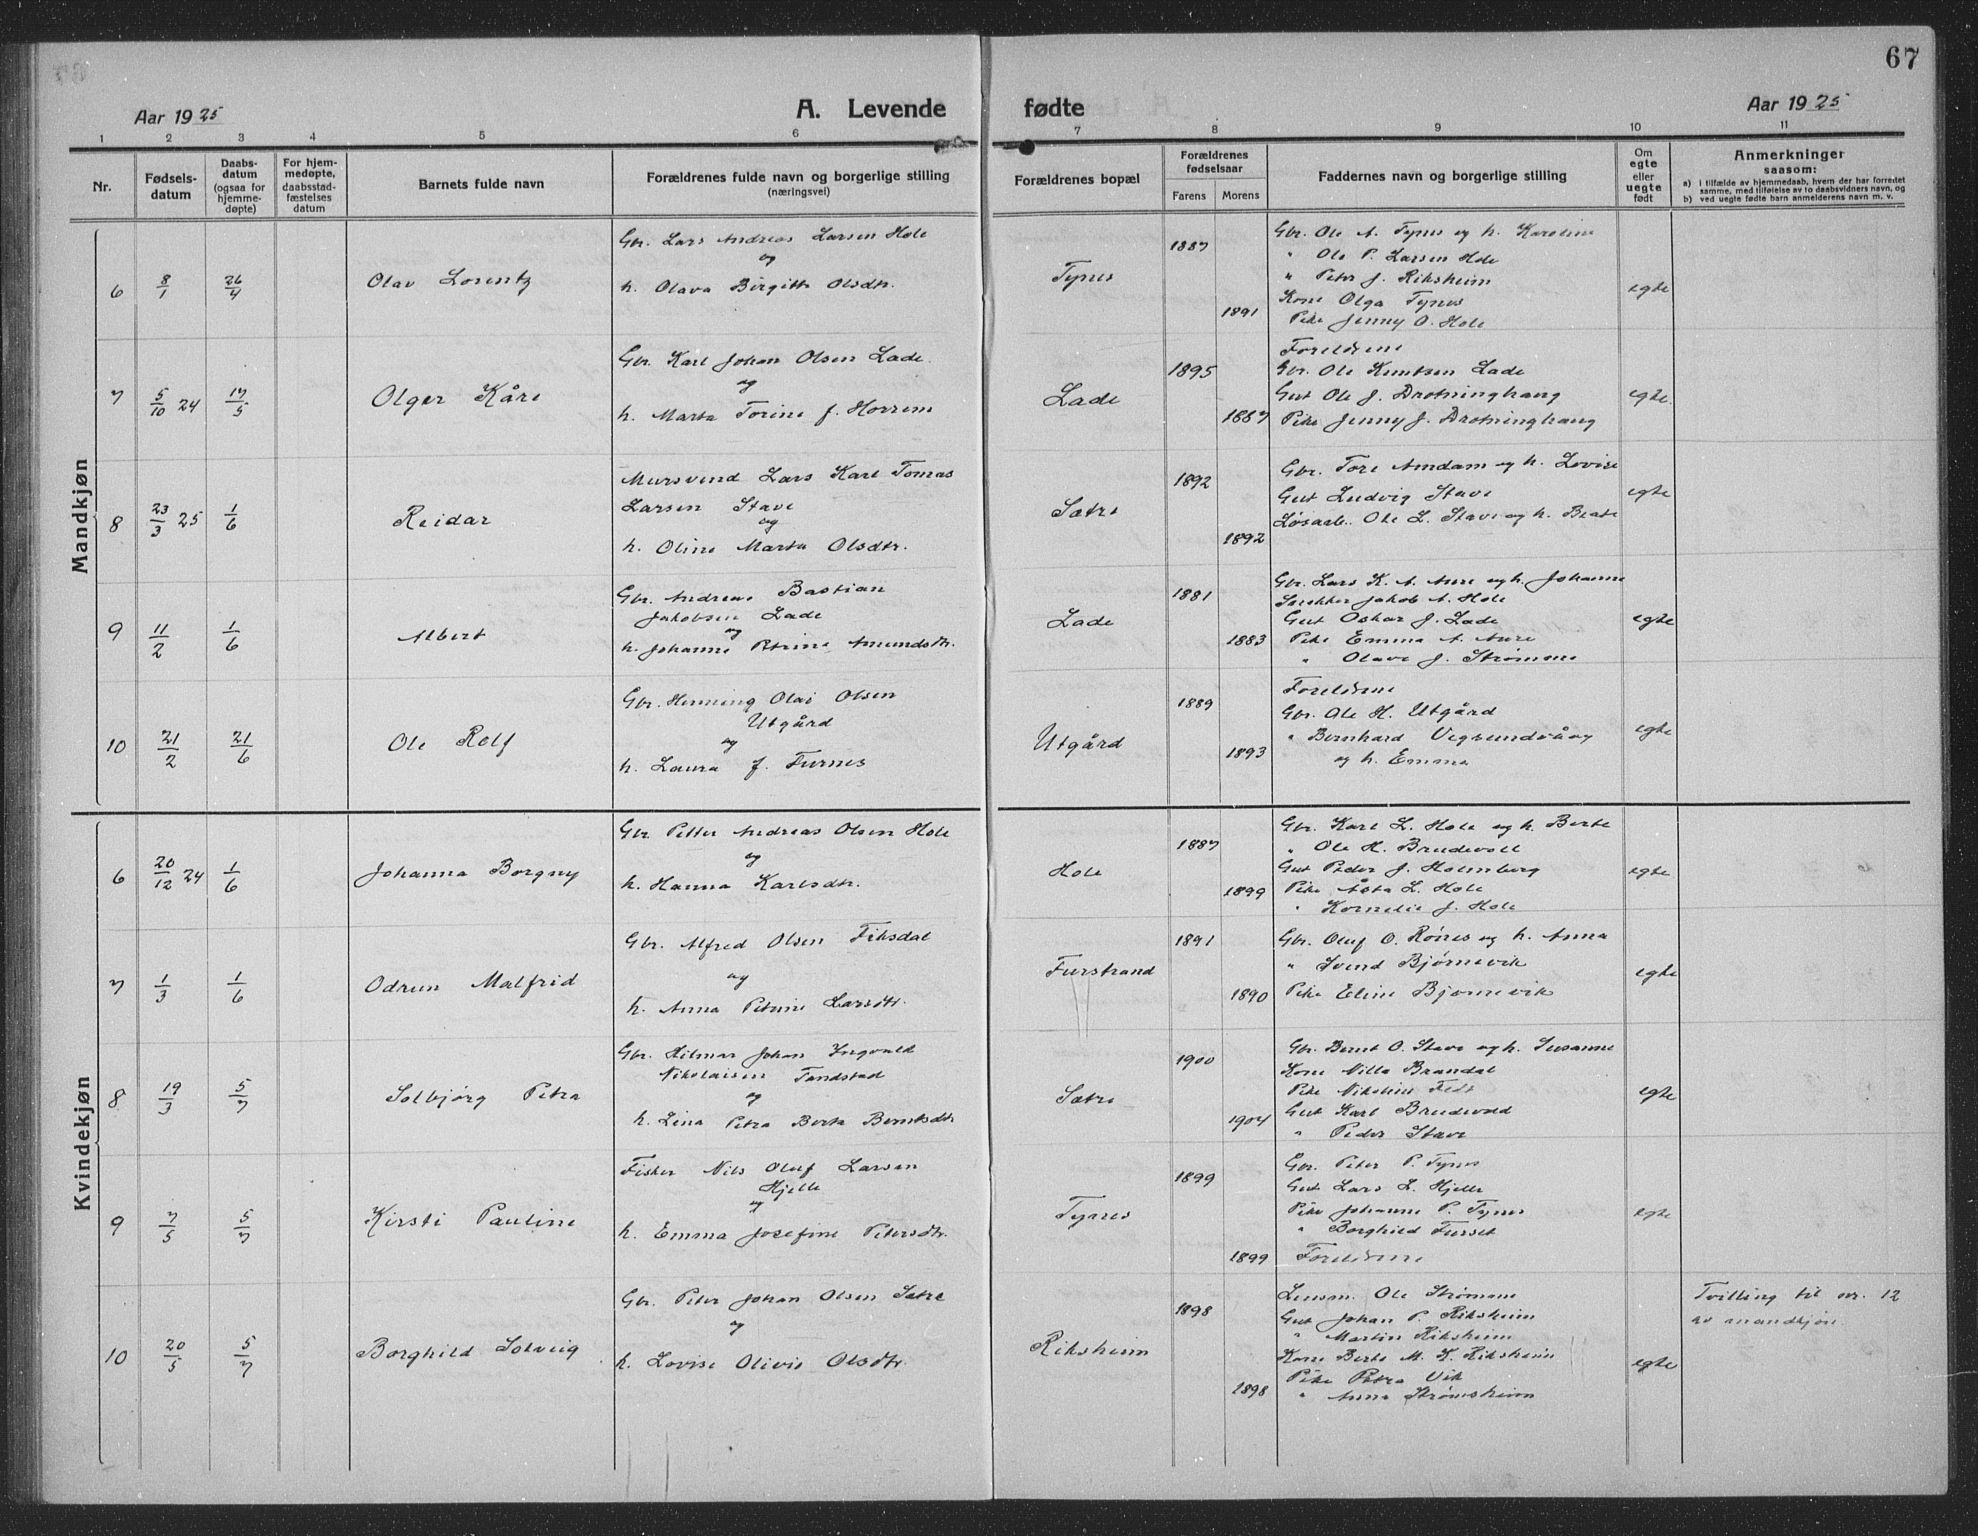 67
Aar 1925 A. Levende fødte Aar 1925
1 2 3 4 5 6 7 8 9 10 11
Nr.
Fødsels-
datum
Daabs-
datum
(ogsaa for
hjemme-
døpte)
For hjem-
medøpte,
daabsstad-
fæstelses
datum
Barnets fulde navn
Forældrenes fulde navn og borgerlige stilling
(næringsvei)
Forældrenes bopæl
Forældrenes
fødselsaar
Farens Morens
Faddernes navn og borgerlige stilling
Om
egte
eller
uegte
født
Anmerkninger
saasom:
a) i tilfælde av hjemmedaab, hvem der har forrettet
samme, med tilføielse av to daabsvidners navn, og
b) ved uegte fødte barn anmelderens navn m. v.
Mandkjøn
6 8/1 26/4 Olav Lorentz
Gbr. Lars Andreas Larsen Hole
og
h. Olava Birgitte Olsdtr.
Tynes 1887 1891
Gbr. Ole A. Tynes og h. Karoline
" Ole P. Larsen Hole
" Peter J. Riksheim
Kone Olga Tynes
Pike Jenny O. Hole
egte
7 5/10 24 17/5 Olger Kåre
Gbr. Karl Johan Olsen Lade
og
h. Marta Torine f. Horrem
Lade 1895 1887
Foreldrene
Gbr. Ole Knutsen Lade
Gut Ole J. Drotninghaug
Pike Jenny J. Drotninghaug
egte
8 23/3 25 1/6 Reidar
Mursvend Lars Karl Tomas
Larsen Stave
og
h. Oline Marta Olsdtr.
Sætre 1892 1892
Gbr. Tore Amdam og h. Lovise
Gut Ludvig Stave
Løsarb. Ole L. Stave og h. Beate
egte
9 11/2 1/6 Albert
Gbr. Andreas Bastian
Jakobsen Lade
og
h. Johanne Petrine Amundsdtr.
Lade 1881 1883
Gbr. Lars K. A. Aure og h. Johanne
Snekker Jakob A. Hole
Gut Oskar J. Lade
Pike Emma A. Aure
" Olave J. Strømme
egte
10 21/2 21/6 Ole Rolf
Gbr. Henning Olai Olsen
Utgård
og
h. Laura f. Furnes
Utgård 1889 1893
Foreldrene
Gbr. Ole H. Utgård
" Bernhard Vegsundvåg
og h. Emma
egte
Kvindekjøn
6 20/12 24 1/6 Johanna Borgny
Gbr. Petter Andreas Olsen Hole
og
h. Hanna Karlsdtr.
Hole 1887 1899
Gbr. Karl L. Hole og h. Berte
" Ole H. Brudevoll
Gut Peder J. Holmberg
Pike Åsta L. Hole
" Kornelie J. Hole
egte
7 1/3 1/6 Odrun Malfrid
Gbr. Alfred Olsen Fiksdal
og
h. Anna Petrine Larsdtr.
Furstrand 1891 1890
Gbr. Oluf O. Rønes og h. Anna
" Svend Bjørnevik
Pike Eline Bjørnevik
egte
8 19/3 5/7 Solbjørg Petra
Gbr. Hilmar Johan Ingvald
Nikolaisen Tandstad
og
h. Lina Petra Berta Berntsdtr.
Sætre 1900 1904
Gbr. Bernt O. Stave og h. Susanne
Kone Nilla Brandal
Pike Nikoline Fedt
Gut Karl Brudevold
" Peder Stave
egte
9 7/5 5/7 Kirsti Pauline
Fisker Nils Oluf Larsen
Hjelle
og
h. Emma Josefine Petersdtr.
Tynes 1899 1899
Gbr. Peter P. Tynes
Gut Lars L. Hjelle
Pike Johanne P. Tynes
" Borghild Furset
Foreldrene
egte
10 20/5 5/7 Borghild Solveig
Gbr. Peter Johan Olsen Sætre
og
h. Lovise Olivie Olsdtr.
Riksheim 1898 1898
Lensm. Ole Strømme
Gut Johan P. Riksheim
" Martin Riksheim
Kone Berte M. K. Riksheim
Pike Petra Vik
" Anna Strømsheim
egte
Tvilling til nr. 12
av mandkjøn.